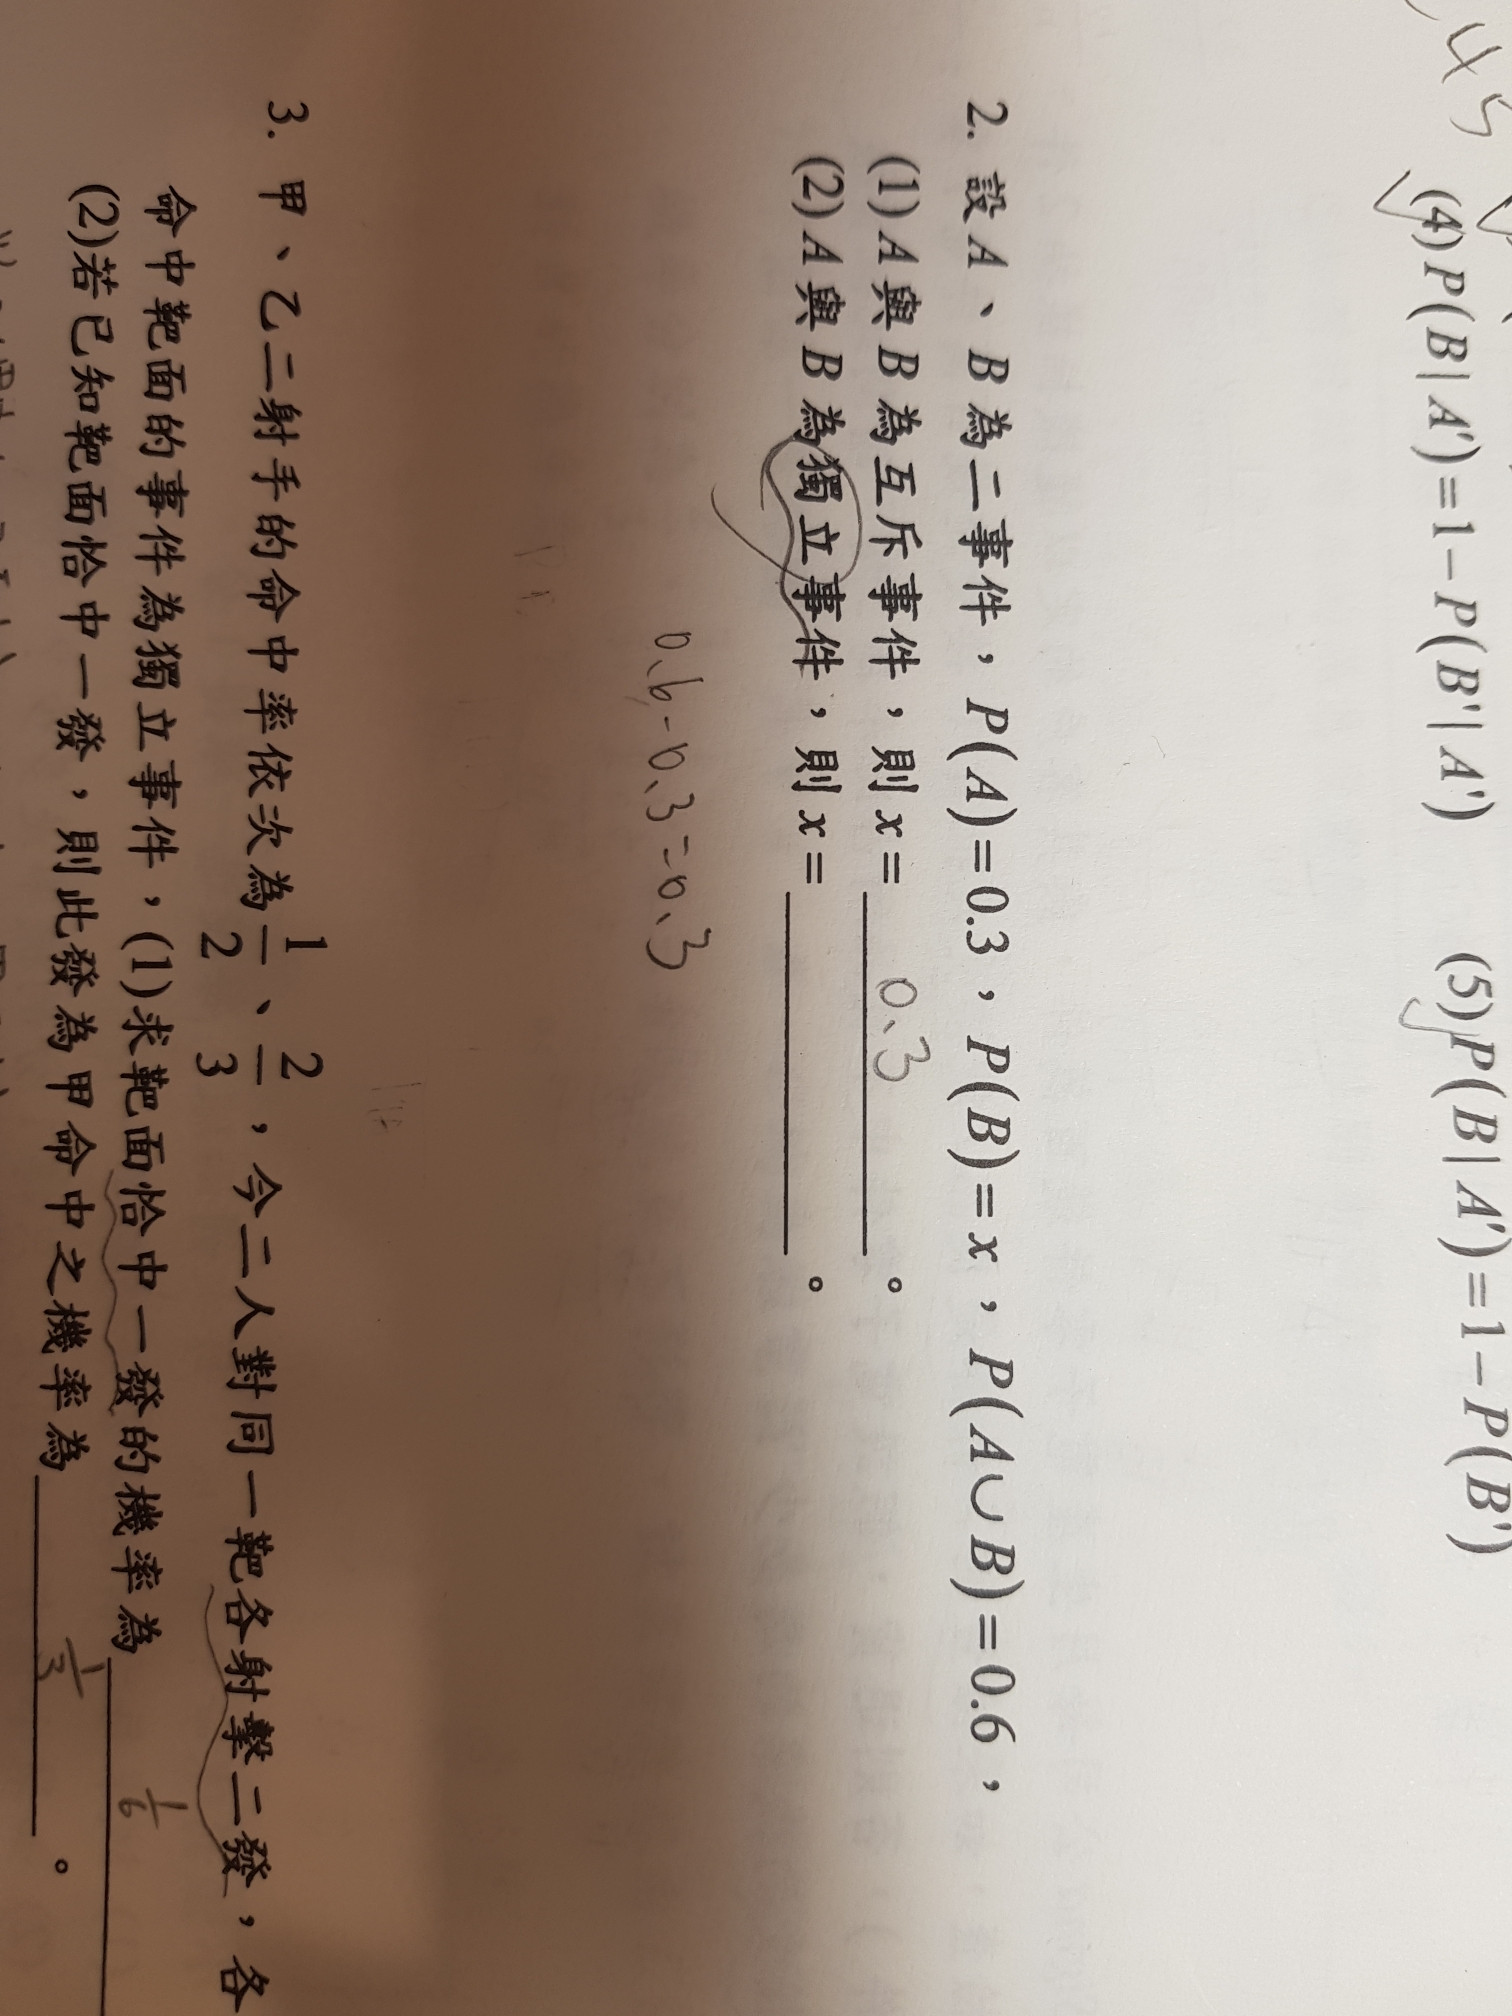 45
(4) P(B|A')=1-P(B'|A') (5) P(B|A')=1-P(B')
2. 設A、B為二事件，P(A)=0.3，P(B)=x，P(A∪B)=0.6，
(1) A與B為互斥事件，則x= 0.3 。
(2) A與B為獨立事件，則x= 。
0.6-0.3=0.3
3. 甲、乙二射手的命中率依次為1/2、2/3，今二人對同一靶各射擊二發，各
命中靶面的事件為獨立事件，(1)求靶面恰中一發的機率為 1/6
(2)若已知靶面恰中一發，則此發為甲命中之機率為 1/3 。